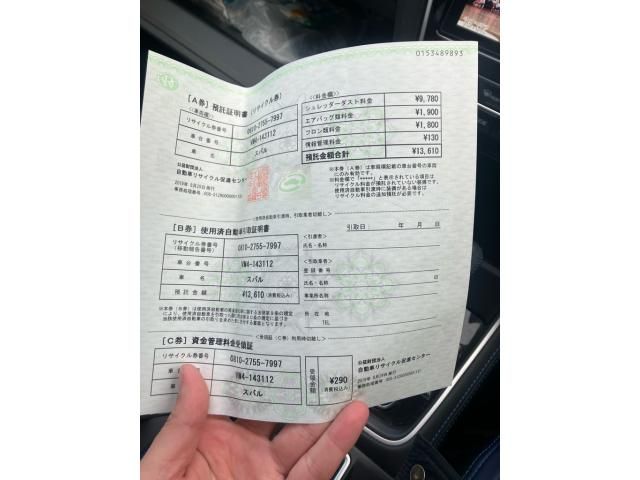 0153489893
[A券] 預託証明書(リサイクル券)
<車両欄>
リサイクル券番号 0810-2755-7997
車台番号 VM4-143112
車名 スバル
公益財団法人
自動車リサイクル促進センター
<料金欄>
シュレッダーダスト料金 ¥9,780
エアバッグ類料金 ¥1,900
フロン類料金 ¥1,800
情報管理料金 ¥130
預託金額合計 ¥13,610
※本券(A券)は車両欄記載の車台番号の車両
にのみ有効です。
※料金欄で「*****」と表示されている項目は
リサイクル料金が預託されていない装備です。
使用済自動車引渡時に装備がある場合は
リサイクル料金の追加預託が必要です。
<使用済自動車引渡時、引取業者切離し>
[B券] 使用済自動車引取証明書
引取日: 年 月 日
リサイクル券番号
(移動報告番号) 0810-2755-7997
車台番号 VM4-143112
車名 スバル
預託金額 ¥13,610(消費税込み)
<引渡者>
氏名・名称
<引取業者>
登録番号
氏名・名称
事業所名
所在地
TEL
[C券] 資金管理料金受領証
リサイクル券番号 0810-2755-7997
VM4-143112
スバル
受領金額 ¥290
(消費税込み)
公益財団法人
自動車リサイクル促進センター